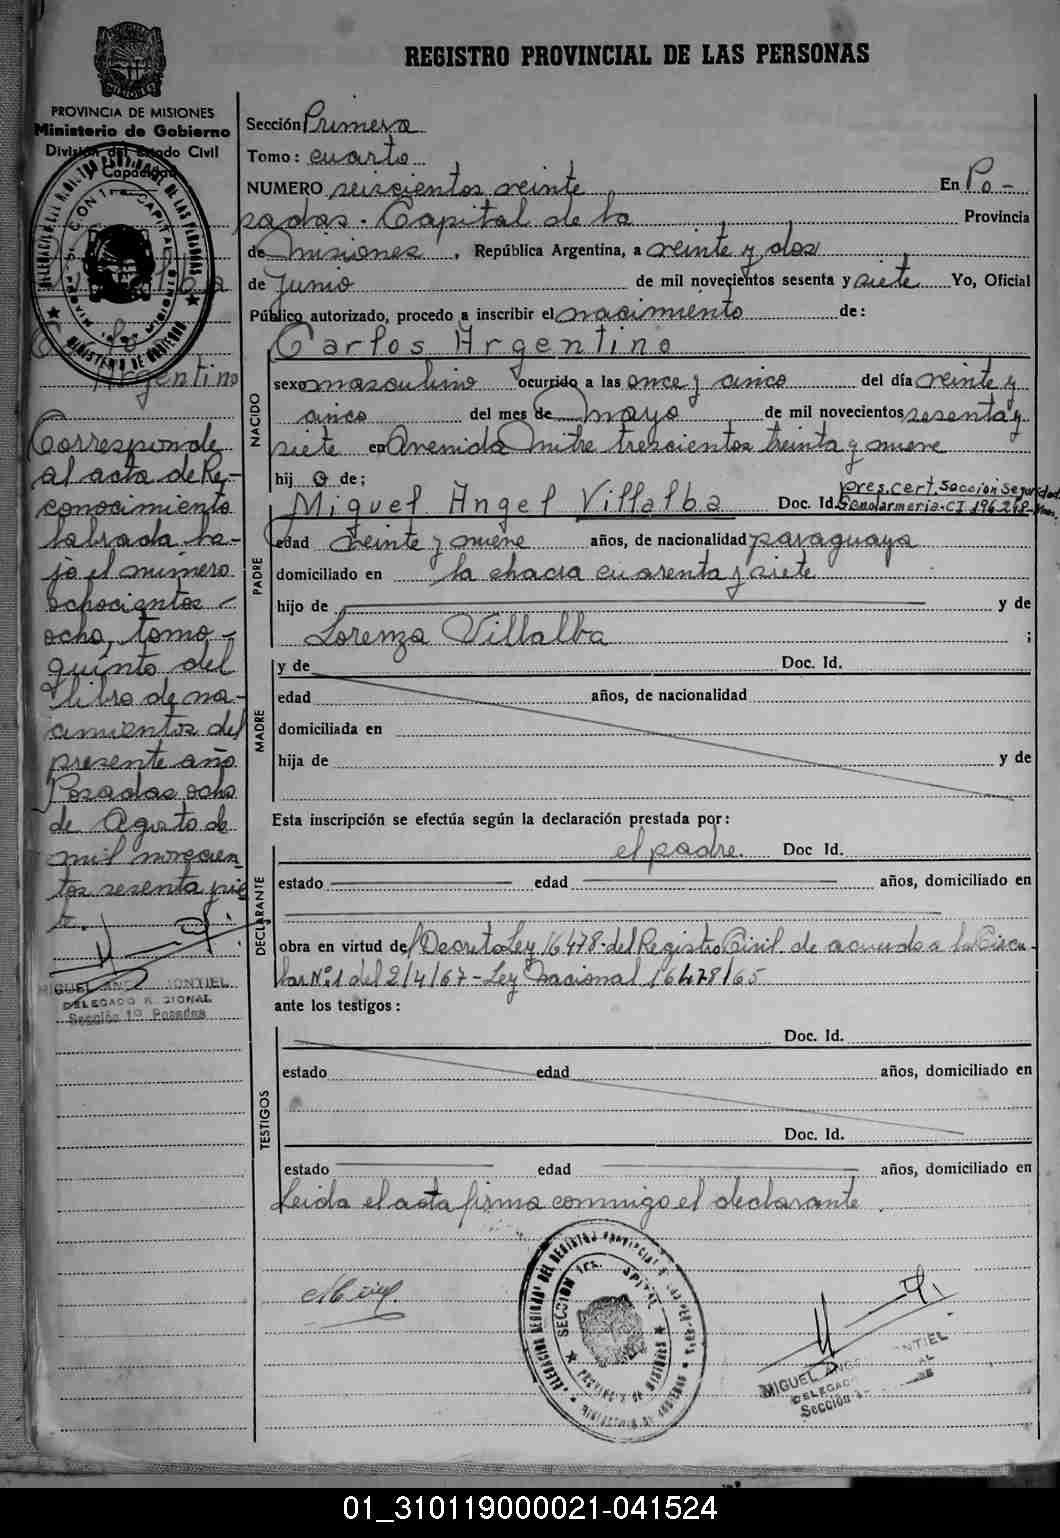 REGISTRO PROVINCIAL DE LAS PERSONAS
PROVINCIA DE MISIONES
Ministerio de Gobierno
División del Estado Civil
Capacidad
Sección Primera
Tomo: cuarto
NUMERO seiscientos veinte En Po-
sadas. Capital de la Provincia
de Misiones, República Argentina, a veinte y dos
de Junio de mil novecientos sesenta y siete Yo, Oficial
Público autorizado, procedo a inscribir el nacimiento de:
Carlos Argentino
NACIDO
sexo masculino ocurrido a las once y cinco del día veinte y
cinco del mes de mayo de mil novecientos sesenta y
siete en Avenida Mitre trescientos treinta y nueve
hij o de;
Miguel Angel Villalba Doc. Id. pres. cert. Seccion Seguridad
Gendarmeria. CI 196.248
PADRE
edad veinte y nueve años, de nacionalidad paraguaya
domiciliado en la chacra cuarenta y siete
hijo de y de
Lorenza Villalba ;
MADRE
y de Doc. Id.
edad años, de nacionalidad
domiciliada en
hija de y de
Esta inscripción se efectúa según la declaración prestada por:
DECLARANTE
el padre. Doc Id.
estado edad años, domiciliado en
obra en virtud del Decreto Ley 16478-del Registro Civil de acuerdo a la Circu-
lar Nº 1 del 2/4/67 - Ley Nacional 16478/65
ante los testigos:
TESTIGOS
Doc. Id.
estado edad años, domiciliado en
Doc. Id.
estado edad años, domiciliado en
Leida el acta firma conmigo el declarante
Argentino
Corresponde
al acta de Re-
conocimiento
labrada ba-
jo el número
ochocientos
ocho, tomo
quinto del
libro de na-
cimientos del
presente año
Posadas ocho
de Agosto de
mil novecien
tos sesenta y sie
te.
MIGUEL ANGEL MONTIEL
DELEGADO REGIONAL
Sección 1º Posadas
MIGUEL ANGEL MONTIEL
DELEGADO
Sección
01_310119000021-041524